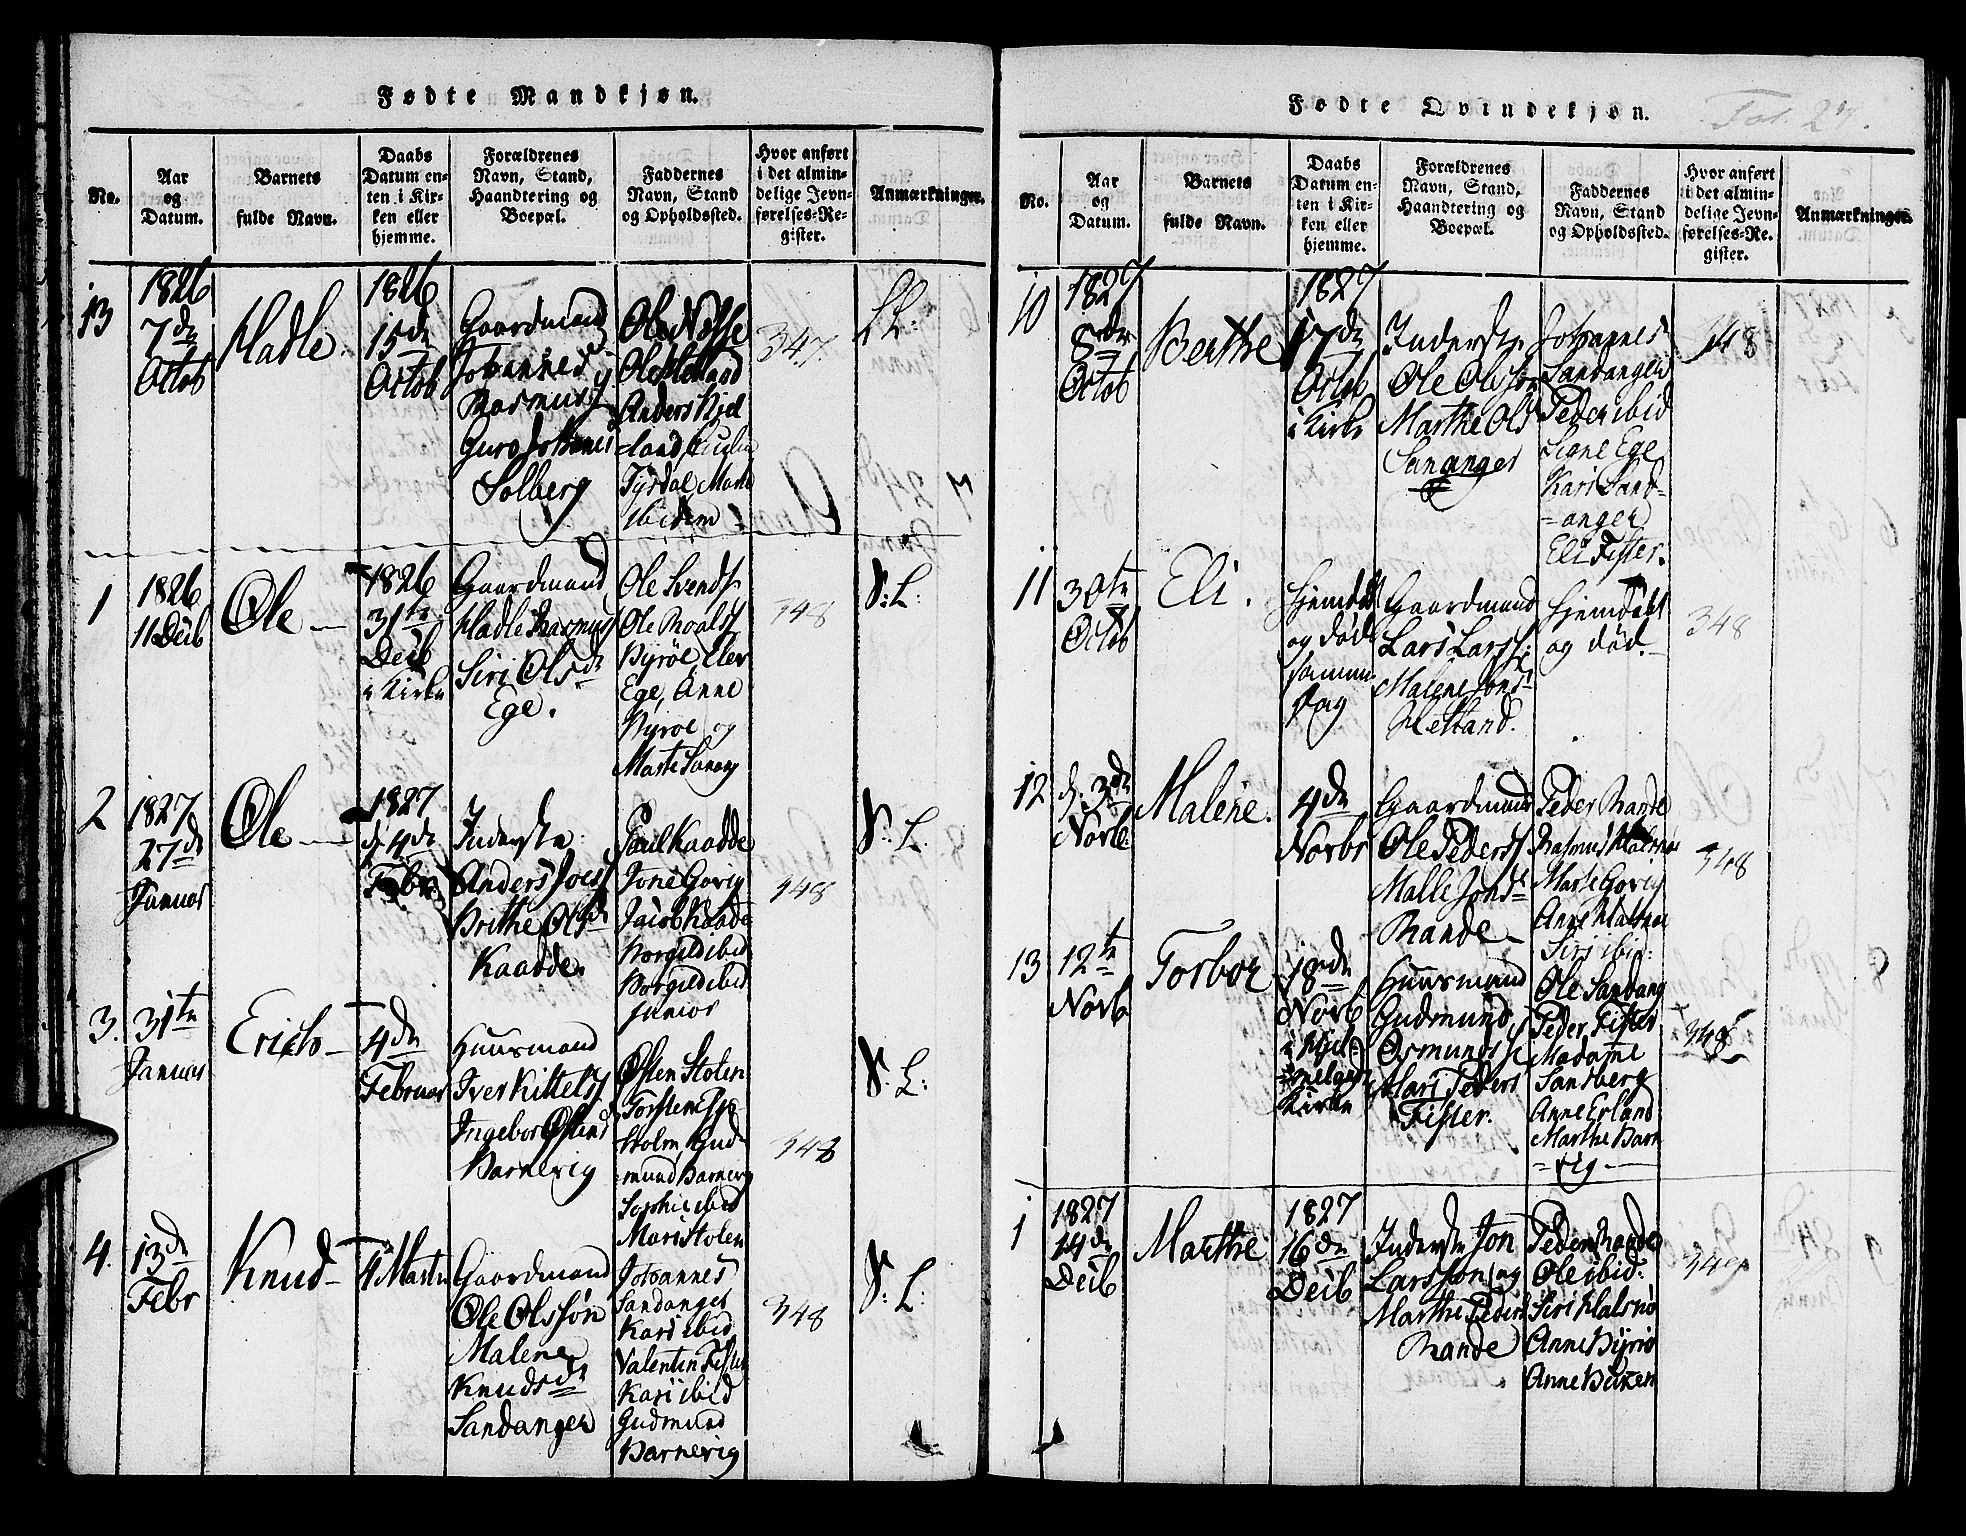 Fødte Mandkjøn.
No.
Aar
og
Datum.
Barnets
fulde Navn.
Daabs
Datum en-
ten i Kir-
ken eller
hjemme.
Forældrenes
Navn, Stand,
Haandtering og
Boepæl.
Faddernes
Navn, Stand
og Opholdssted.
Hvor anført
i det almin-
delige Jevn-
førelses-Re-
gister.
Anmærkninger.
13
1826
7de
Octob
Hadle.
1826
15de
Octob
Gaardmand
Johannes
Rasmus
Guro
Solberg
Ole
Ole
Anders Kjel
-land,
Tysdal, Marte
ibidem
347.
1
1826
11 Decb
Ole
1826
31te
Decb
i Kirke
Gaardmand
Hadle Rasmus
Siri Olsd
Ege.
Ole Svends
Ole Roalds
Byrøe, Elev
Ege, Anne
Byroe og
Marte
348
S: L:
2
1827
27de
Januar
Ole
1827
d. 4de
Febr
Inderste
Anders
Brithe Olsd
Kaadde.
Paul Kaadde
Jone Govig
Jacob Kaade
Borgild ibid
Borgild ibid
junior
348
S: L:
3.
31te
Januar
Erich
4de
Februar
Huusmand
Iver Kittels
Ingebor
Barnevig
Østen Stolen
Torsten
Holm, Gud-
mund Barnevig
Sophie ibid
Mari Stolen
348
S: L:
4.
13de
Febr
Knud
4 Marts
Gaardmand
Ole Olssøn
Malene
Knudsd
Sandanger
Johannes
Sandanger
Kari ibid
Valentin Fister
Kari ibid
Gudmund
Barnevig
348
S: L:
Fødte Qvindekjøn.
Fol. 27.
No.
Aar
og
Datum.
Barnets
fulde Navn.
Daabs
Datum en-
ten i Kir-
ken eller
hjemme.
Forældrenes
Navn, Stand,
Haandtering og
Boepæl.
Faddernes
Navn, Stand
og Opholdssted.
Hvor anført
i det almin-
delige Jevn-
førelses-Re-
gister.
Anmærkninger.
10
1827
8de
Octob
Berthe
1827
17de
Octob
i Kirke
Inderste
Ole Olssøn
Marthe Ols
Sananger
Johannes
Sandanger
Peder ibid
Signe Ege
Kari Sand-
-anger
Eli Fister.
348
11
30te
Octob
Eli.
Hjemdøbt
og død
samme
Dag
Gaardmand
Lars Larss:
Malene Jonsd
Hetland.
Hjemdøbt
og død.
348
12
d. 3de
Novb.
Malene.
4de
Novbr
Gaardmand
Ole Peders
Malle Jonsd
Rande
Peder Rande
Rasmus
Marte Govig
Anne
Siri ibid:
348
13
12te
Novb
Torbor
18de
Novb
i
Kirke
Huusmand
Gudmund
Osmunds
Mari Peders
Fister.
Ole Sandang
Peder Fister
Madame
Sandberg
Anne Erland
Marthe Barn
-vig
348
1
1827
14de
Decb
Marthe
1827
16de
Decb
Inderste Jon
Larssøn og
Marthe Peders
Rande
Peder Rande
Ole ibid:
Siri
Anne Byrø
Anne
349